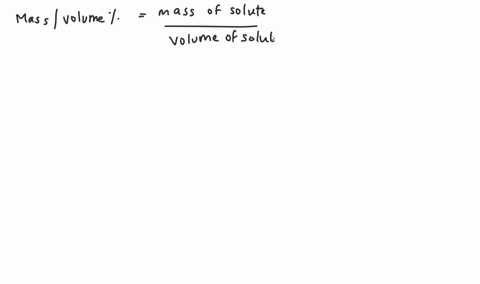 Mass/volume % = mass of solute
volume of solut